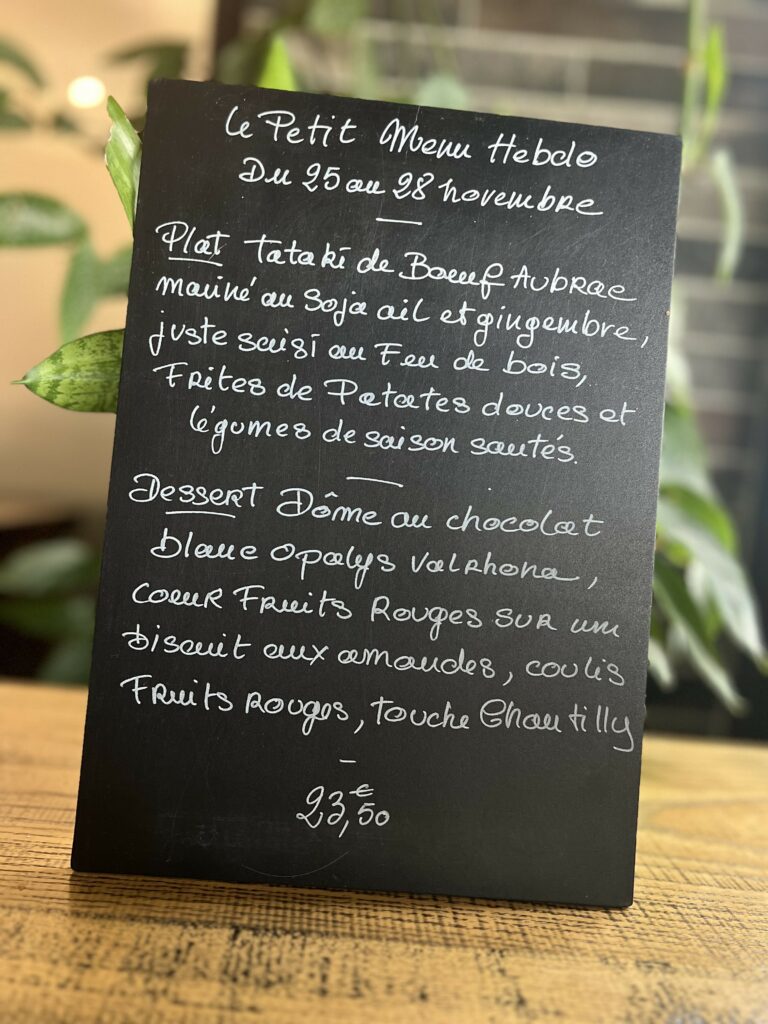 Le Petit Menu Hebdo
Du 25 au 28 novembre
Plat Tataki de Bœuf Aubrac
mariné au Soja ail et gingembre,
juste saisi au Feu de bois,
Frites de Patates douces et
légumes de saison sautés.
Dessert Dôme au chocolat
blanc Opalys Valrhona,
cœur Fruits Rouges sur un
biscuit aux amandes, coulis
Fruits Rouges, touche Chantilly
23,50€